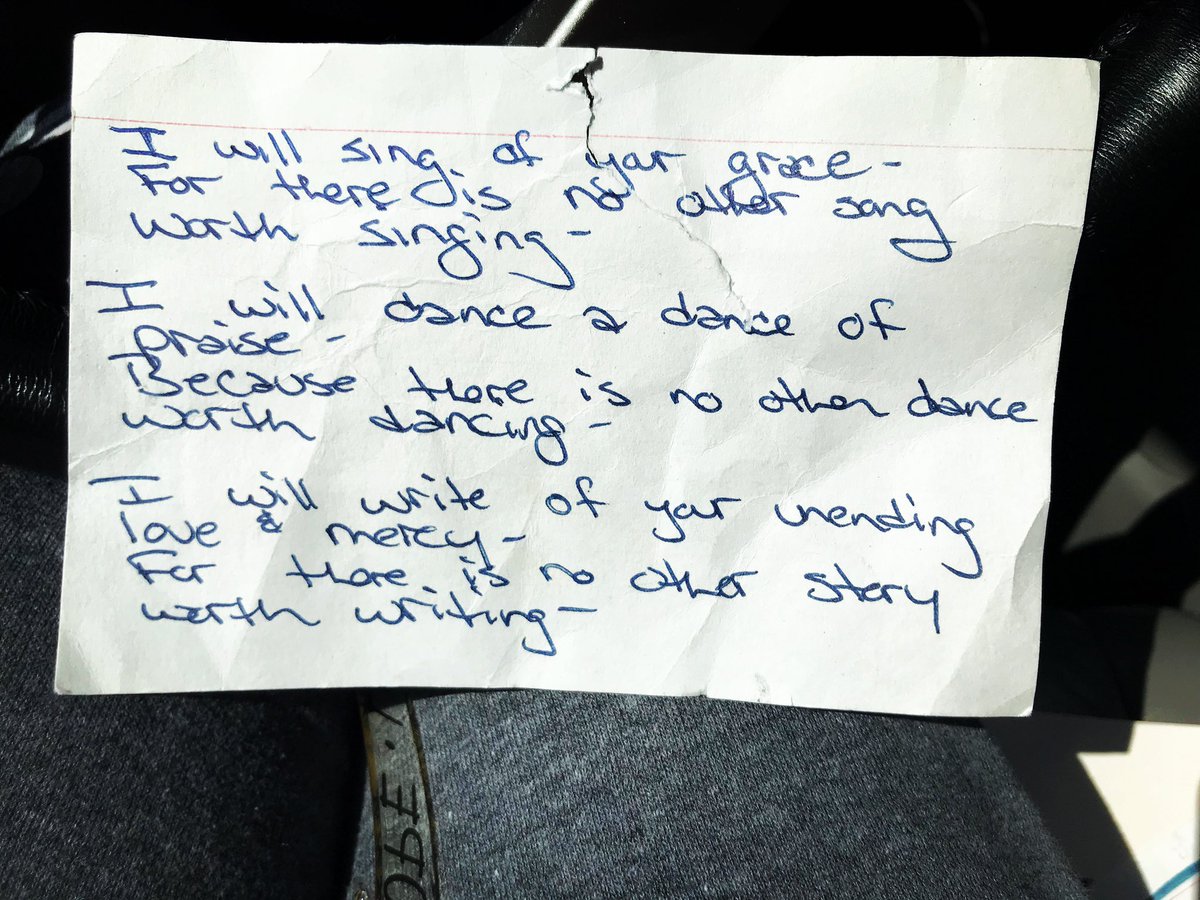 I will sing of your grace -
For there is no other song
worth singing -
I will dance a dance of
praise -
Because there is no other dance
worth dancing -
I will write of your unending
love & mercy -
For there is no other story
worth writing -